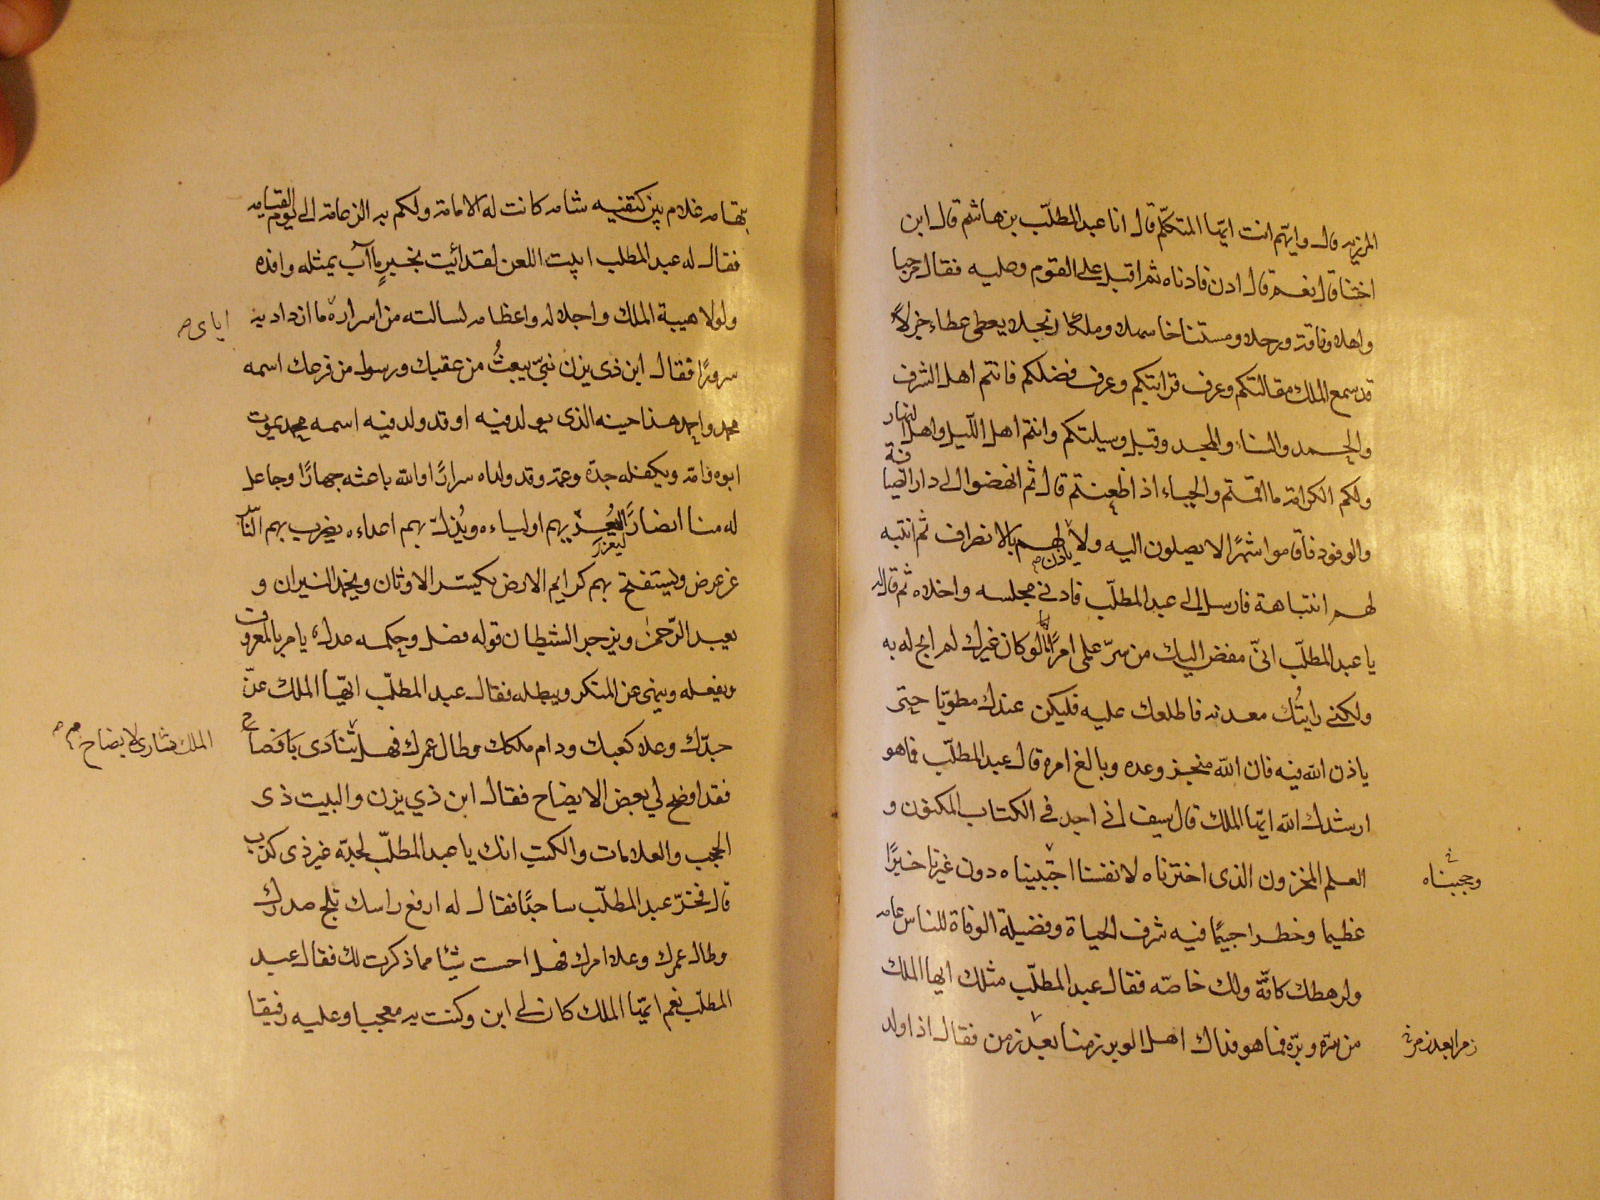 المزيد قال وايهم انت ايها المتكلم قال انا عبد المطلب بن هاشم قال ابن
اختنا قال نعم قال ادن فادناه ثم اقبل على القوم وعليه فقال مرحبا
واهلا وناقة ورحلا ومستناخا سهلا وملكا ربحلا يعطى عطاء جزلاً
قد سمع الملك مقالتكم وعرف قرابتكم وعرف فضلكم فانتم اهل الشرف
والحمد والثناء والمجد وقبل وسيلتكم وانتم اهل الليل واهل النهار
ولكم الكرامة ما اقمتم والحباء اذ اظعنتم قال ثم انهضوا الى دار الضيافة
والوفود فاقاموا شهرًا لا يصلون اليه ولا يأذن لهم بالانصراف ثم انتبه
لهم انتباهة فارسل الى عبد المطلب فادنى مجلسه واخلاه ثم قال له
يا عبد المطلب انى مفض اليك من سرّ علمى امرًا ما لو كان غيرك لم ابح له به
ولكنى رايتُك معدنه فاطلعك عليه فليكن عندك مطويّا حتى
ياذن الله فيه فان الله منجز وعده وبالغ امره قال عبد المطلب فما هو
ارشدك الله ايها الملك قال سيف انى اجد فى الكتاب المكنون و
العلم المخزون الذى اخترناه لانفسنا اجتبيناه دون غيرنا خبرًا
وحجبناه
عظيما وخطرا جسيمًا فيه شرف الحياة وفضيلة الوفاة للناس عامه
ولرهطك كافّة ولك خاصّه فقال عبد المطلب مثلك ايها الملك
من سرّه وبرّه فما هو فداك اهل الوبر زمنا بعد زمن فقال اذا ولد
زمرا بعد زمر
بتهامه غلام بين كتفيه شامه كانت له الامامة ولكم به الزعامة الى يوم القيامه
فقال له عبد المطلب ابيت اللعن لقد اتيت بخير ما آب بمثله وافده
ولولا هيبة الملك واجلاله واعظامه لسالته من اسراره ما ازداد به
اياى صح
سرورًا فقال ابن ذى يزن نبىّ يبعثُ من عقبك ورسول من فرعك اسمه
محمد واحمد هذا حينه الذى يولد فيه او قد ولد فيه اسمه محمد يموت
ابوه وامّه ويكفله جدّه وعمّه وقد ولدناه سرارًا والله باعثه جهارًا وجاعل
له منا انصارًا ليعزّ بهم اولياءه ويُذلّ بهم اعداءه يضرب بهم النّاس
عن عرض ويستفتح بهم كرايم الارض يكسّر الاوثان ويخمد النيران و
يعبد الرّحمن ويزجر الشيطان قوله فصل وحكمه عدل يامر بالمعروف
ويفعله وينهى عن المنكر ويبطله فقال عبد المطلب ايّها الملك عزّ
جدّك وعلا كعبك ودام ملكك وطال عمرك فهل بافصاح
فقد اوضح لي بعض الايضاح فقال ابن ذي يزن والبيت ذى
الحجب والعلامات والكتب انك يا عبد المطلب لجدّه غير ذى كذب
قال فخرّ عبد المطلب ساجدًا فقال له ارفع راسك ثلج صدرك
وطال عمرك وعلا امرك فهل احست شيئا مما ذكرت لك فقال عبد
المطلب نعم ايّها الملك كان لى ابن وكنت به معجبا وعليه رفيقا